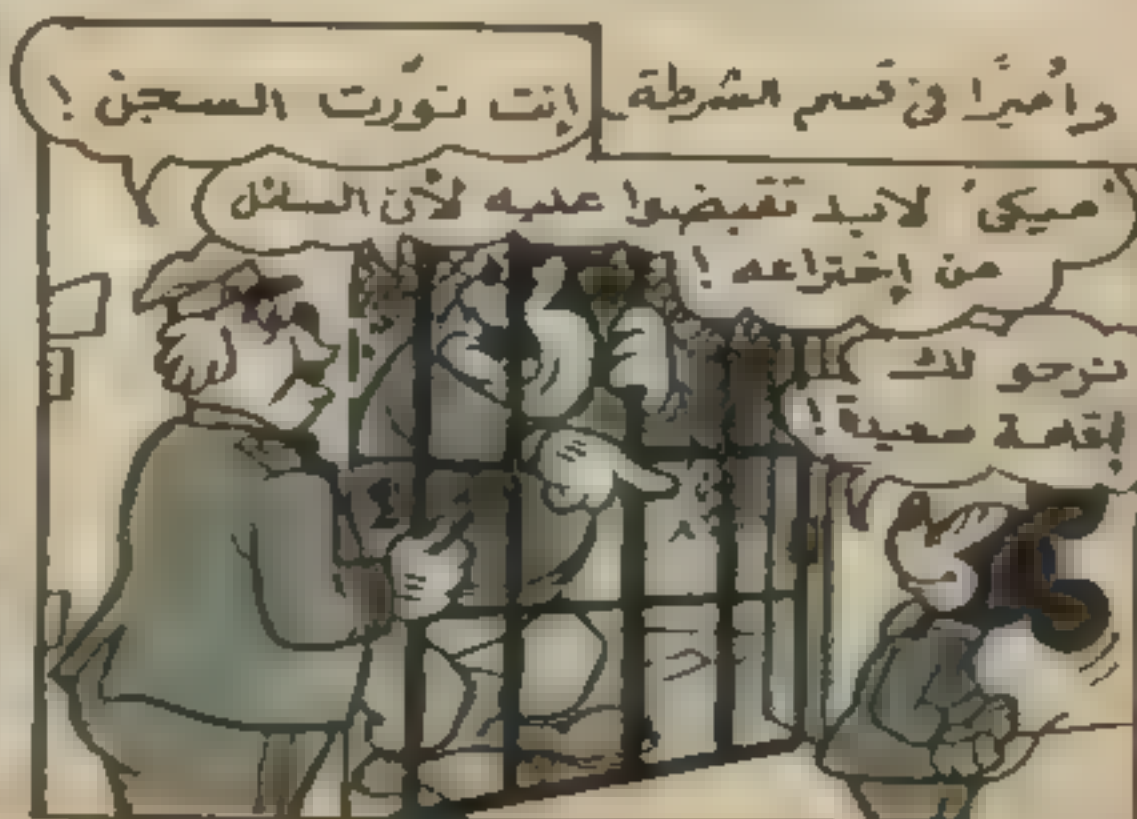 وأخيرًا فى قسم الشرطة
إنت نوّرت السجن !
ميكى لابد تقبضوا عليه لأن السائل
من إختراعه !
نرجو لك
إقامة سعيدة !